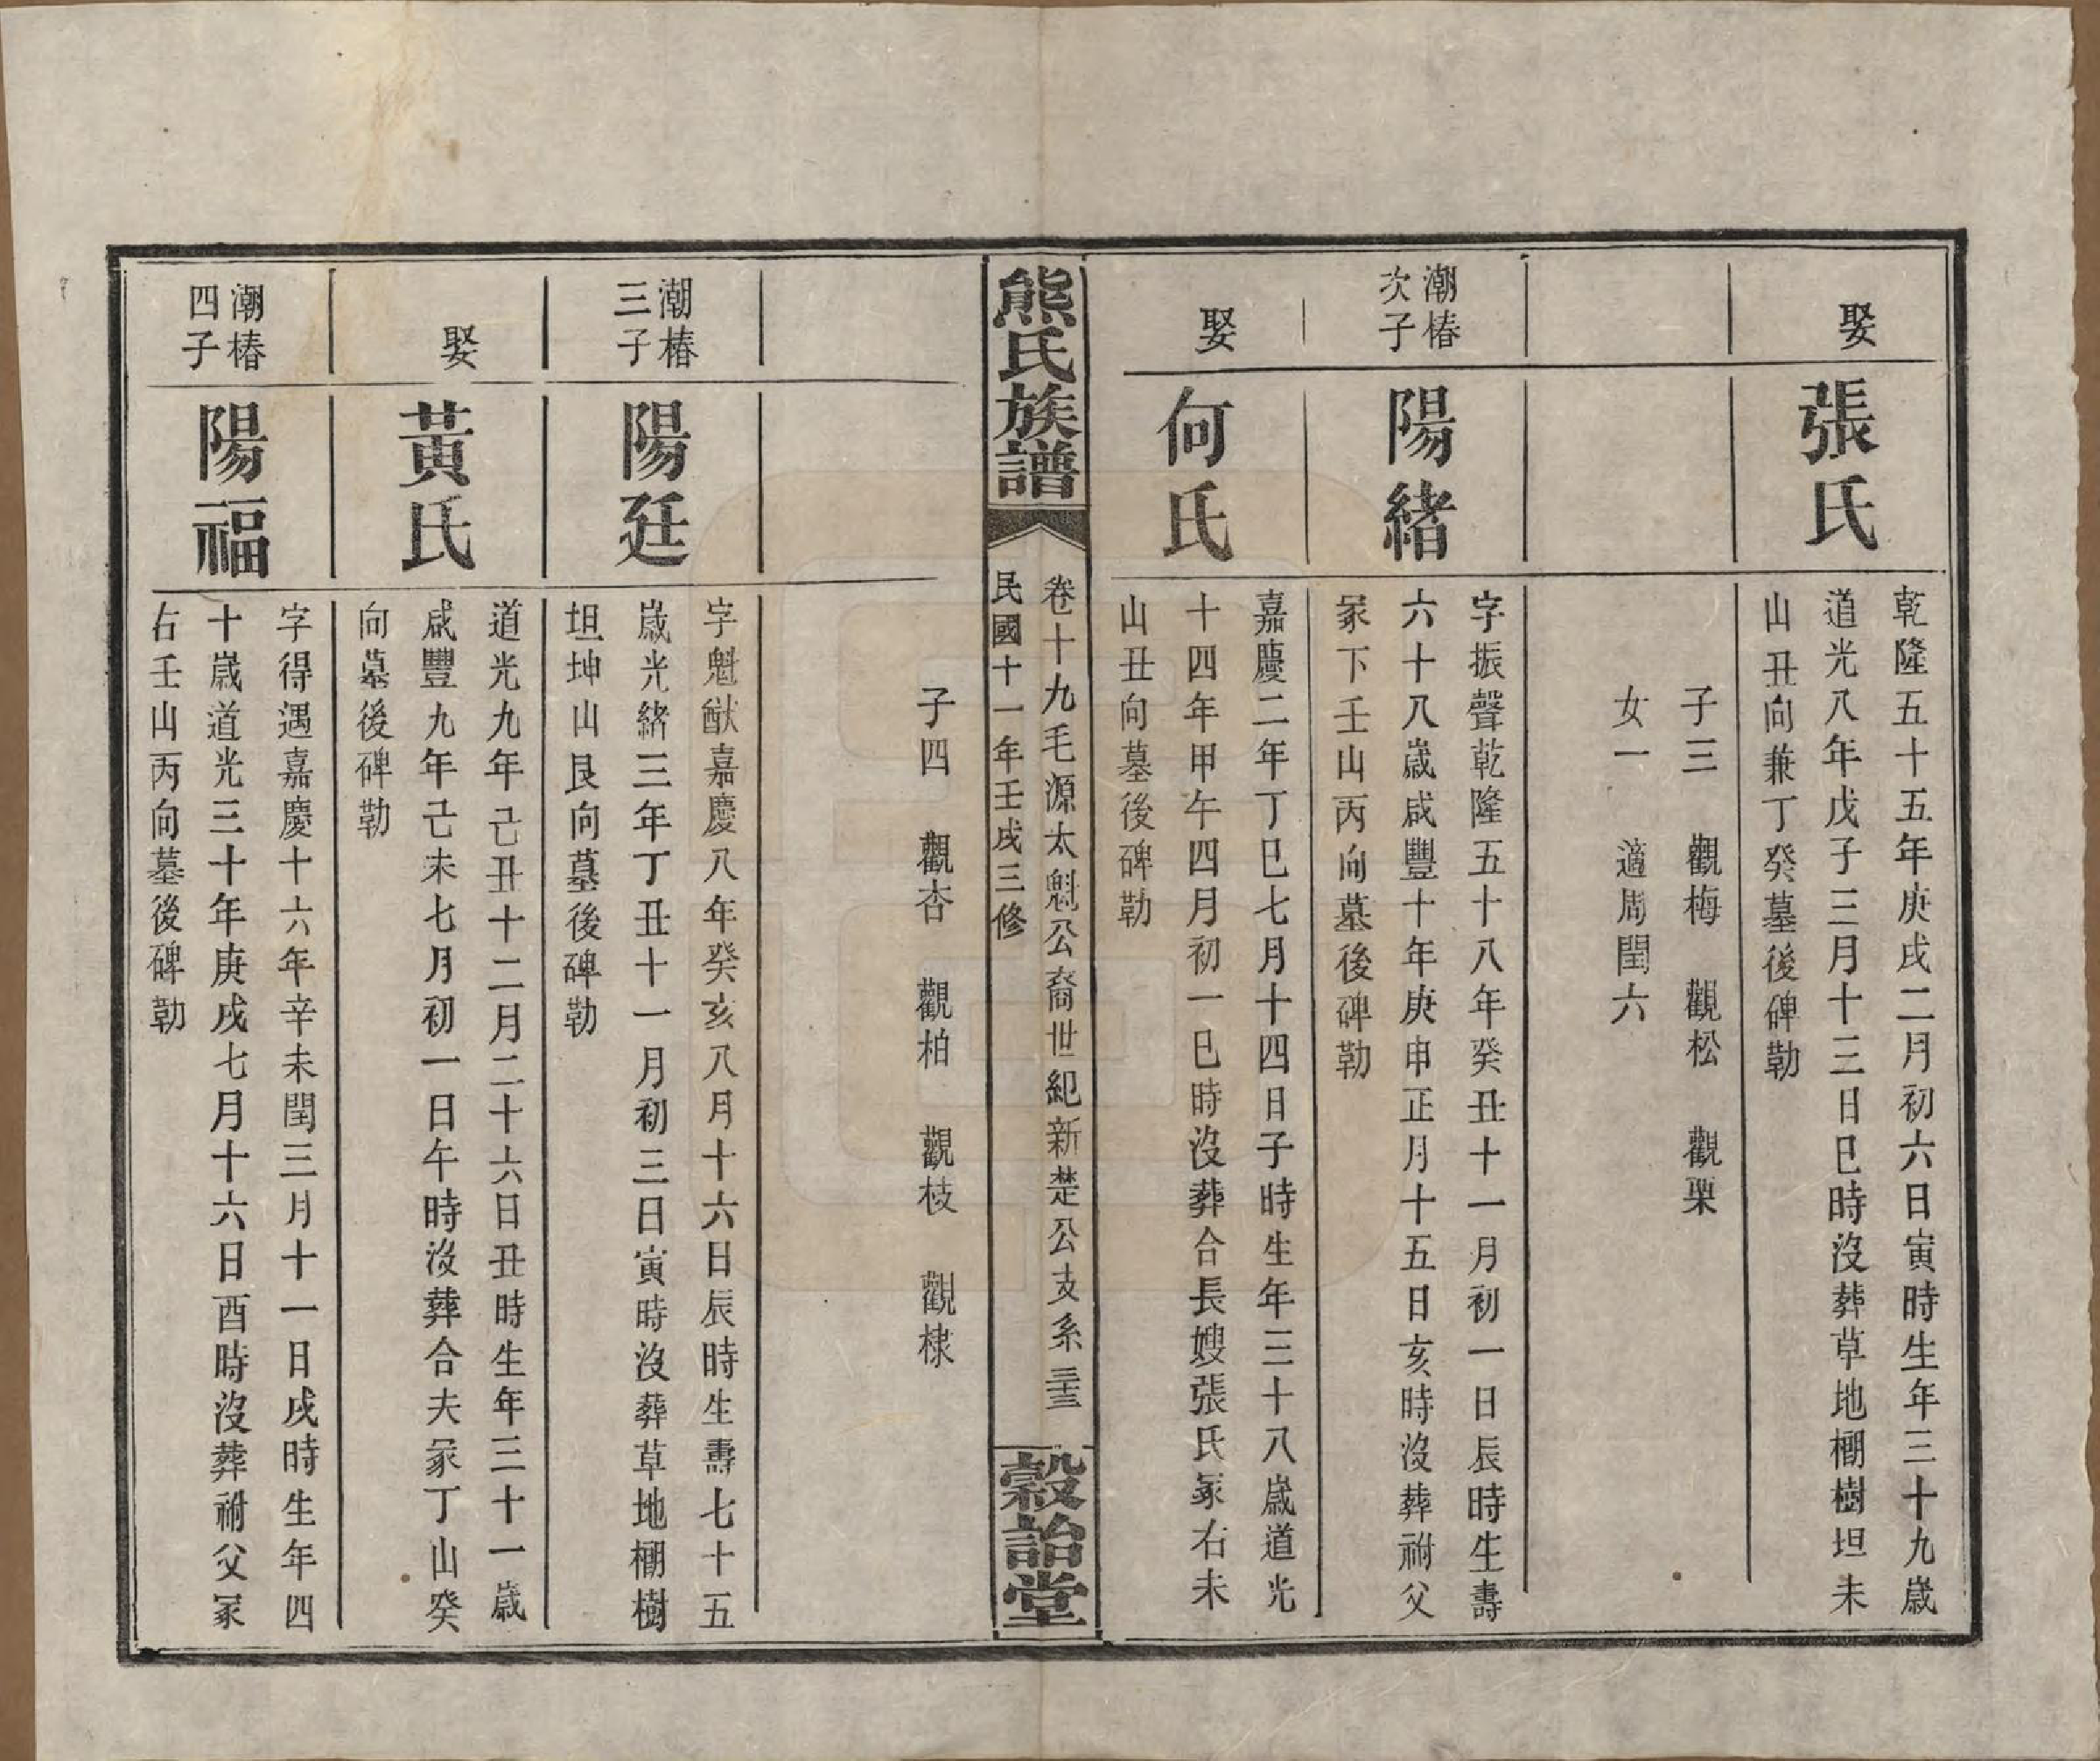 娶
張氏
乾隆五十五年庚戌二月初六日寅時生年三十九歲
道光八年戊子三月十三日巳時沒葬草地棚樹坦未
山丑向兼丁癸墓後碑勒
子三 觀梅 觀松 觀栗
女一 適周閏六
潮椿
次子
陽緒
字振聲乾隆五十八年癸丑十一月初一日辰時生壽
六十八歲咸豐十年庚申正月十五日亥時沒葬祔父
冢下壬山丙向墓後碑勒
娶
何氏
嘉慶二年丁巳七月十四日子時生年三十八歲道光
十四年甲午四月初一巳時沒葬合長嫂張氏冢右未
山丑向墓後碑勒
熊氏族譜
卷十九毛源太魁公裔世紀新楚公支系 三十三
民國十一年壬戌三修
穀詒堂
子四 觀杏 觀柏 觀枝 觀棣
潮椿
三子
陽廷
字魁猷嘉慶八年癸亥八月十六日辰時生壽七十五
歲光緒三年丁丑十一月初三日寅時沒葬草地棚樹
坦坤山艮向墓後碑勒
娶
黃氏
道光九年己丑十二月二十六日丑時生年三十一歲
咸豐九年己未七月初一日午時沒葬合夫冢丁山癸
向墓後碑勒
潮椿
四子
陽福
字得遇嘉慶十六年辛未閏三月十一日戌時生年四
十歲道光三十年庚戌七月十六日酉時沒葬祔父冢
右壬山丙向墓後碑勒